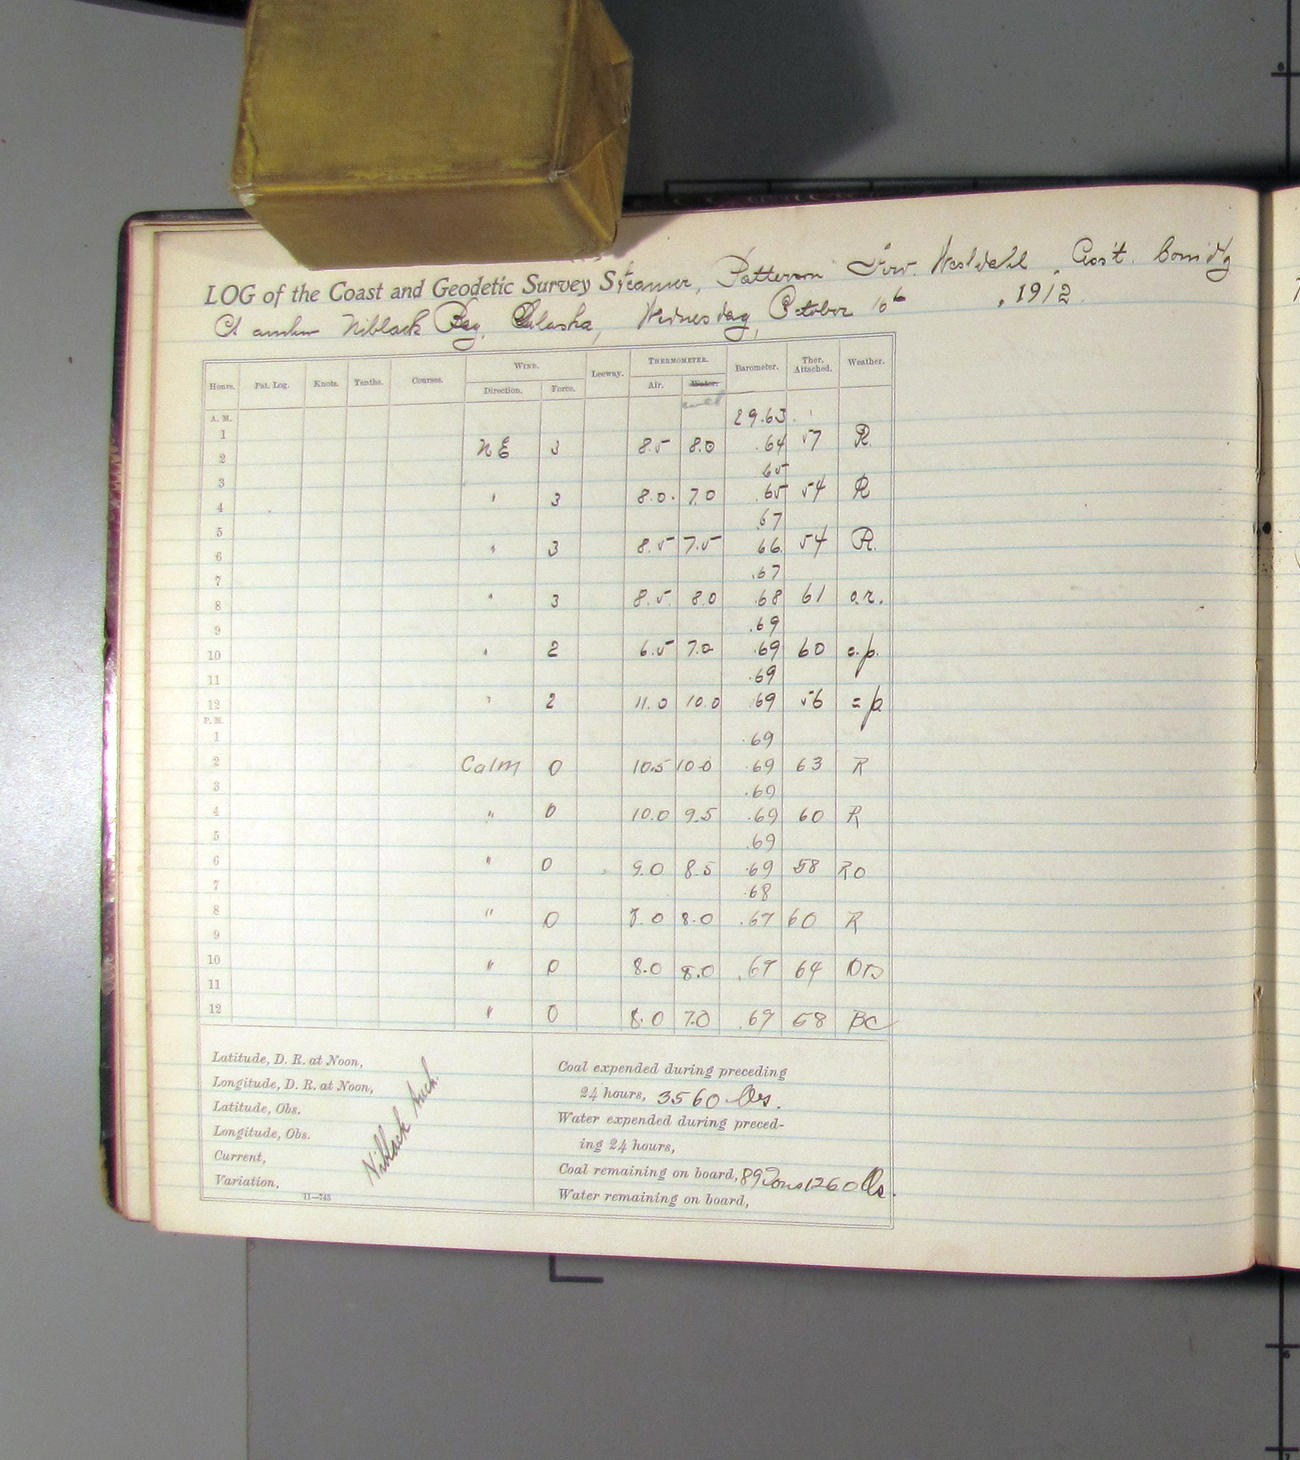 LOG of the Coast and Geodetic Survey Steamer, Patterson Westdahl, Ass't. Com'd'g
Niblack Bay, Alaska, Wednesday, October 16, 1912
Hours. Pat. Log. Knots. Tenths. Courses. WIND. Leeway. THERMOMETER. Barometer. Ther. Attached. Weather.
Direction. Force. Air. Water.
wet
A. M. 29.63
1 .64
NE 3 8.5 8.0 57 R.
2
.65
3
" 3 8.0. 7.0 .65 54 R
4
.67
5
" 3 8.5 7.5 66 54 R.
6
.67
7
" 3 8.5 8.0 .68 61 o.r.
8
.69
9
" 2 6.5 7.0 .69 60 c.p.
10
.69
11
" 2 11.0 10.0 .69 56 c p
12
P. M.
1 .69
2 Calm 0 10.5 10.0 .69 63 R
3 .69
4 " 0 10.0 9.5 .69 60 R
5 .69
6 " 0 9.0 8.5 .69 58 RO
7 .68
8 " 0 8.0 8.0 .67 60 R
9
10 " 0 8.0 8.0 .67 64
11
12 " 0 8.0 7.0 .67 58 BC
Latitude, D. R. at Noon,
Longitude, D. R. at Noon,
Latitude, Obs.
Longitude, Obs.
Current,
Variation,
Niblack Anch.
11—743
Coal expended during preceding
24 hours, 3560 lbs.
Water expended during preced-
ing 24 hours,
Coal remaining on board, 89 Tons 1260 lbs.
Water remaining on board,